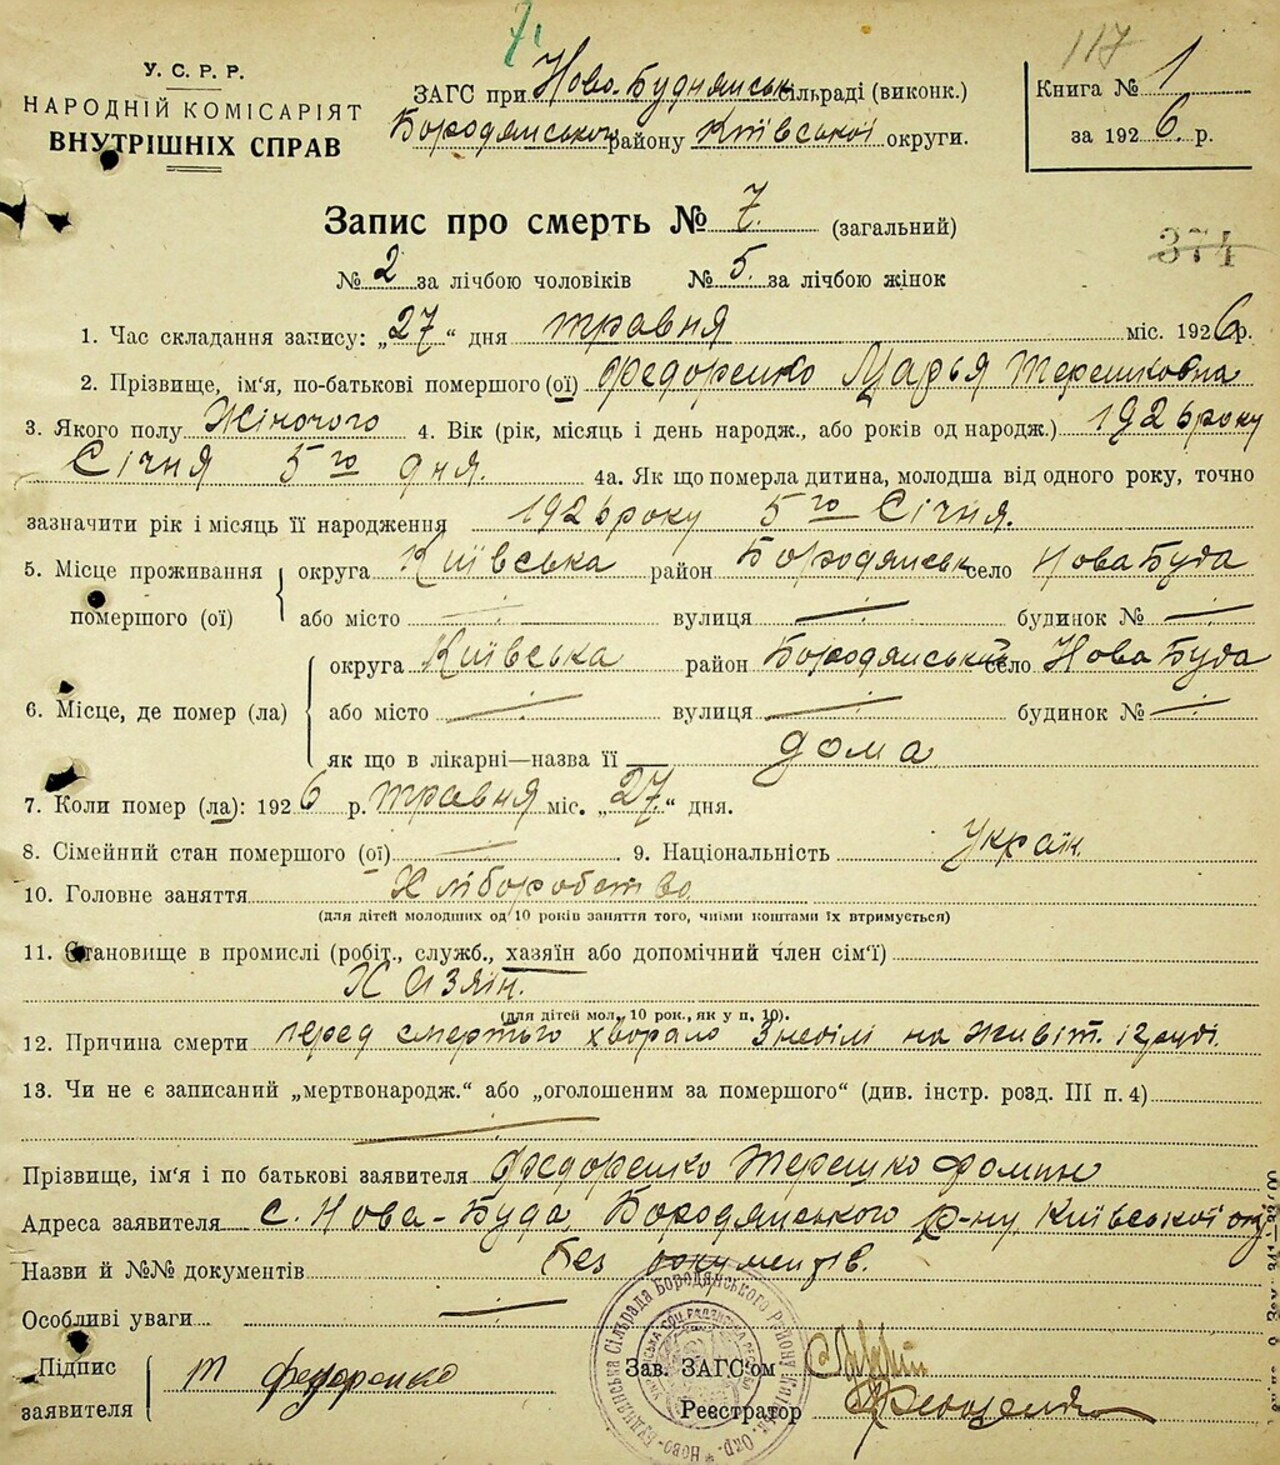 7.
117
У. С. Р. Р.
НАРОДНІЙ КОМІСАРІЯТ
ВНУТРІШНІХ СПРАВ
ЗАГС при Ново-Буднянськ сільраді (виконк.)
Бородянського району Київської округи.
Книга № 1
за 1926 р.
Запис про смерть № 7. (загальний)
374
№ 2 за лічбою чоловіків № 5. за лічбою жінок
1. Час складання запису: „27“ дня травня міс. 1926 р.
2. Прізвище, ім'я, по-батькові помершого (ої) Федоренко Марья Терешковна
3. Якого полу Жіночого 4. Вік (рік, місяць і день народж., або років од народж.) 1926 року
Січня 5го дня. 4а. Як що померла дитина, молодша від одного року, точно
зазначити рік і місяць її народження 1926 року 5го Січня.
5. Місце проживання помершого (ої) округа Київська район Бородянськ село Нова Буда
або місто вулиця будинок №
6. Місце, де помер (ла) округа Київська район Бородянський село Нова Буда
або місто вулиця будинок №
як що в лікарні—назва її дома
7. Коли помер (ла): 1926 р. травня міс. „27.“ дня.
8. Сімейний стан помершого (ої) 9. Національність Україн.
10. Головне заняття Хліборобство
(для дітей молодших од 10 років заняття того, чиїми коштами їх втримується)
11. Становище в промислі (робіт., служб., хазяїн або допомічний член сім'ї)
Хазяїн.
(для дітей мол. 10 рок., як у п. 10).
12. Причина смерти перед смертью хворало 3 неділі на живіт. і груді.
13. Чи не є записаний „мертвонародж.“ або „оголошеним за помершого“ (див. інстр. розд. III п. 4)
Прізвище, ім'я і по батькові заявителя Федоренко Терешко Фомин
Адреса заявителя с. Нова-Буда Бородянського р-ну Київської окр
Назви й №№ документів без документів.
Особливі уваги
Підпис заявителя Т Федоренко
Зав. ЗАГС'ом
Реєстратор
Ново-Буднянська Сільрада Бородянського Району Київськ. Окр.